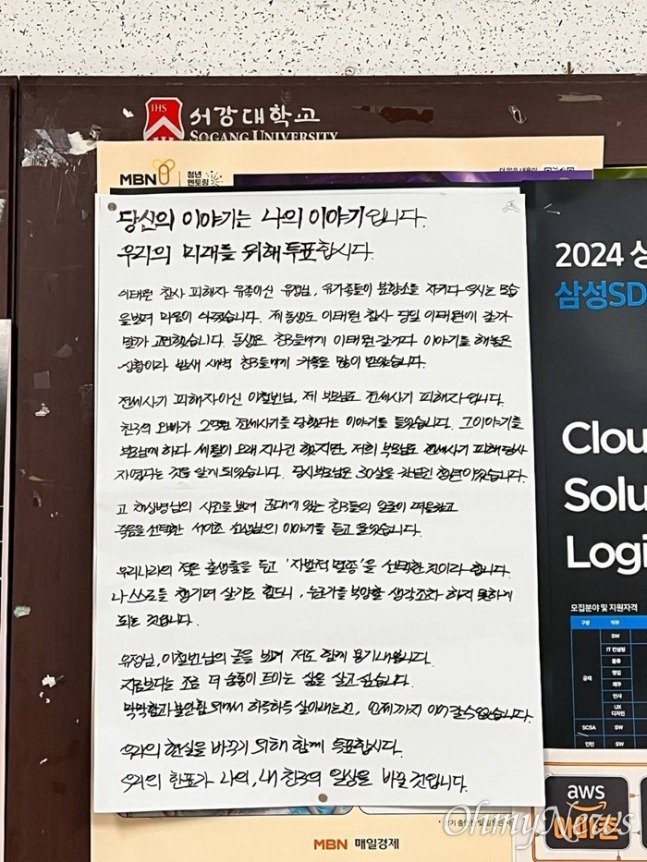 IHS
서강대학교
SOGANG UNIVERSITY
MBN
청년
멘토링
당신의 이야기는 나의 이야기입니다.
우리의 미래를 위해 투표합시다.
이태원 참사 피해자 유족이신 유정님, 유가족들이 분향소를 지키다 우시는 모습
을 보며 마음이 아팠습니다. 제 동생도 이태원 참사 당일 이태원에 갈까
말까 고민했습니다. 동생은 친구들에게 이태원 갈거다 이야기를 해놓은
상황이라 밤새 새벽 친구들에게 카톡을 많이 받았습니다.
전세사기 피해자이신 이철빈님, 제 부모님도 전세사기 피해자입니다.
친구의 오빠가 2억원 전세사기를 당했다는 이야기를 들었습니다. 그 이야기를
부모님께 하다 세월이 오래 지나긴 했지만, 저희 부모님도 전세사기 피해 당사
자였다는 것을 알게 되었습니다. 당시 부모님은 30살을 갓 넘긴 청년이었습니다.
고 채상병님의 사건을 보며 군대에 있는 친구들의 얼굴이 떠올랐고
죽음을 선택한 서이초 선생님의 이야기를 듣고 울었습니다.
우리나라의 적은 출생률을 두고 '자발적 멸종'을 선택한 것이라 합니다.
나 스스로를 챙기며 살기도 힘드니, 누군가를 부양할 생각조차 하지 못하게
되는 것입니다.
유정님, 이철빈님의 글을 보며 저도 함께 용기내봅니다.
지금보다는 조금 더 숨통이 트이는 삶을 살고 싶습니다.
막막함과 불안함 속에서 하루하루 살아내는 건, 언제까지 이어갈 수 없습니다.
우리의 현실을 바꾸기 위해 함께 투표합시다.
우리의 한표가 나의, 내 친구의 일상을 바꿀 것입니다.
2024 상
삼성SD
Clou
Solu
Logi
모집분야 및 지원자격
구분
직무
SW
IT 컨설팅
물류
영업
재무
인사
UX
디자인
공채
SCSA
SW
인턴
SW
aws
MBN 매일경제
OhmyNews